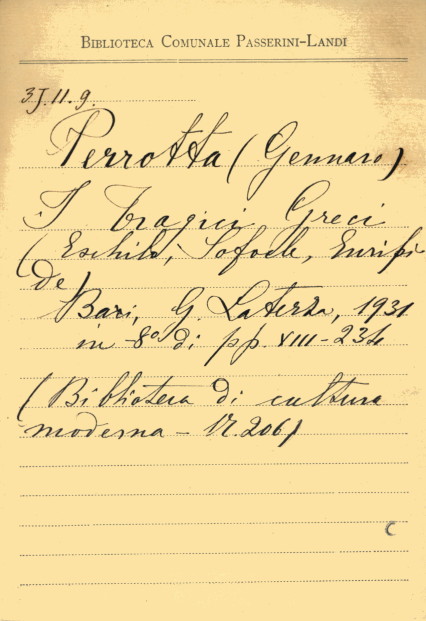 BIBLIOTECA COMUNALE PASSERINI-LANDI
3J.11.9.
Perrotta (Gennaro)
I Tragici Greci
(Eschilo, Sofocle, Euripi
de)
Bari, G. Laterza, 1931
in -8º di pp. XIII-234
(Biblioteca di cultura
moderna - N. 206)